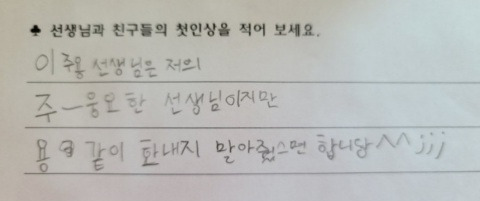 ♣ 선생님과 친구들의 첫인상을 적어 보세요.
이주용 선생님은 저의
주ㅡ웅오한 선생님이지만
용 같이 화내지 말아줬스면 합니당^^;;;